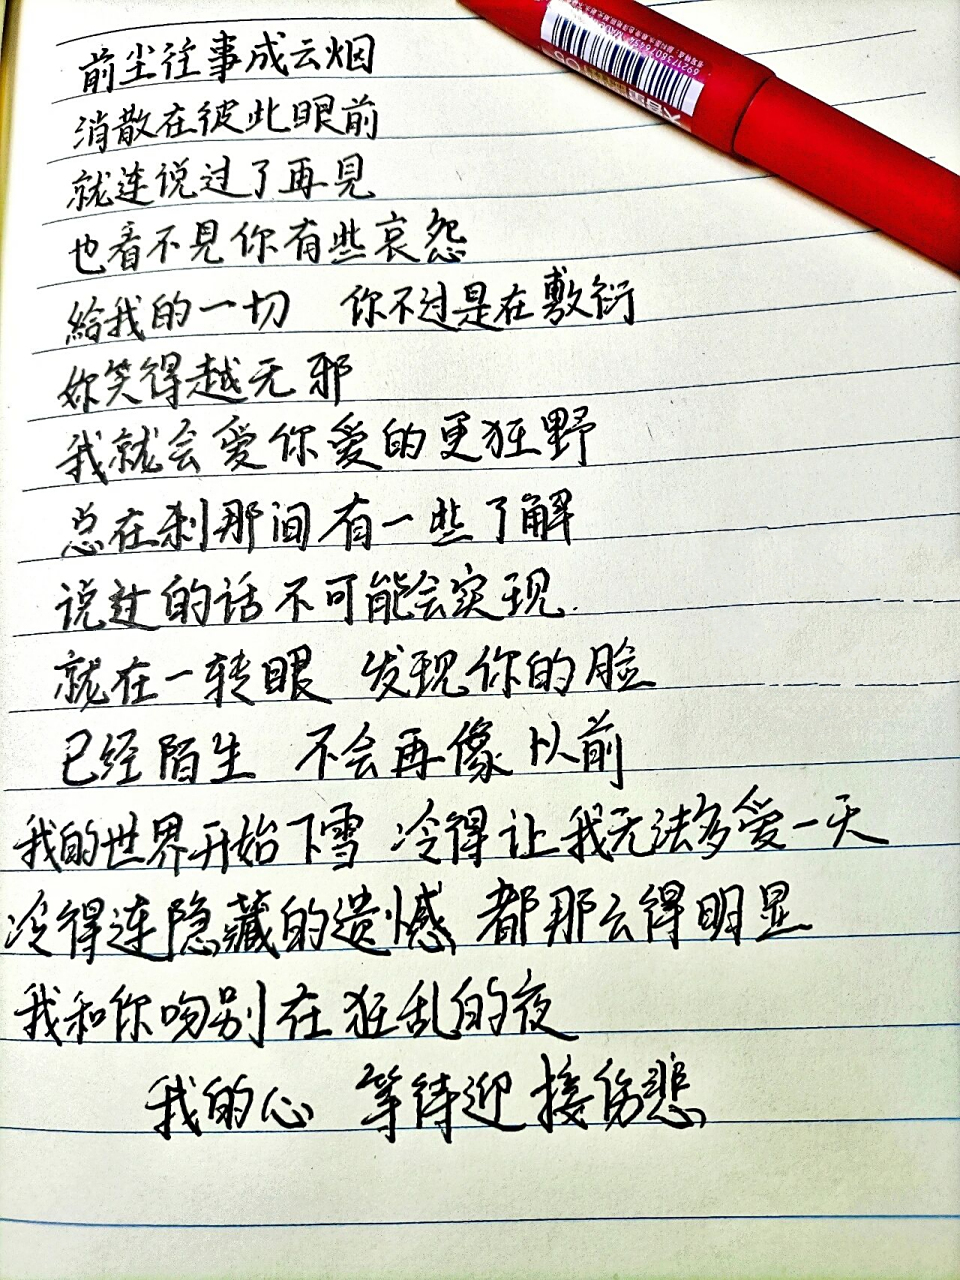 前尘往事成云烟
消散在彼此眼前
就连说过了再见
也看不见你有些哀怨
給我的一切 你不过是在敷衍
妳笑得越无邪
我就会爱你爱的更狂野
总在刹那间有一些了解
说过的话不可能会实现
就在一转眼 发现你的脸
已经陌生 不会再像以前
我的世界开始下雪 冷得让我无法多爱一天
冷得连隐藏的遗憾 都那么得明显
我和你吻别在狂乱的夜
我的心 等待迎接伤悲